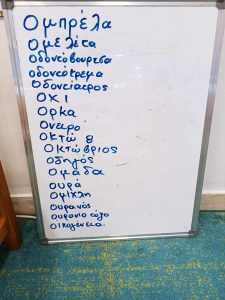 Ομπρέλα
Ομελέτα
Οδοντόβουρτσα
Οδοντόκρεμα
Οδοντίατρος
Οχι
Ορκα
Ονειρο
Οκτώ 8
Οκτώβριος
Οδηγός
Ομάδα
Ουρά
Ομίχλη
Ουρανός
Ουράνιο τόξο
Οικογένεια.